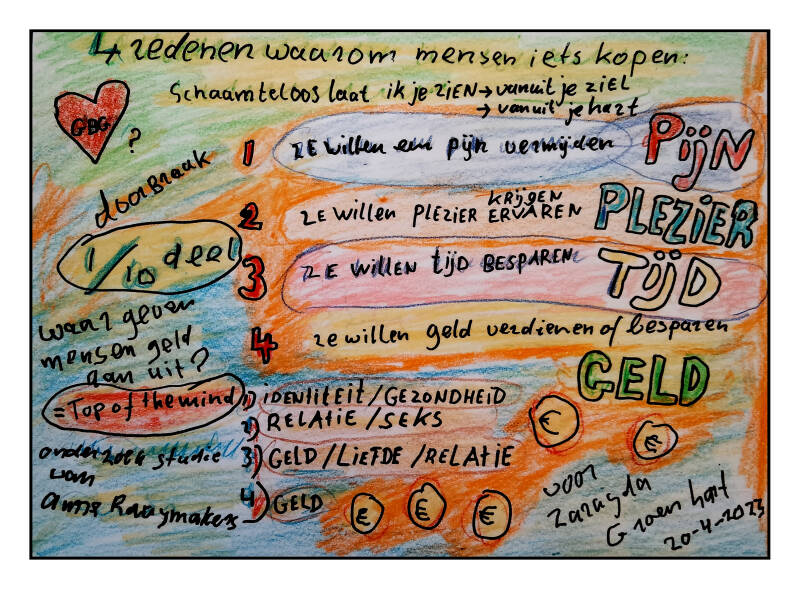 4 redenen waarom mensen iets kopen:
Schaamteloos laat ik je zien → vanuit je ziel
→ vanuit je hart
GBG
?
1 ze willen een pijn vermijden PIJN
doorbraak
2 ze willen PLEZIER KRIJGEN ERVAREN PLEZIER
1/10 deel
3 ZE WILLEN tijd BESPAREN TIJD
4 ze willen geld verdienen of besparen
GELD
waar geven
mensen geld
aan uit?
= Top of the mind
1) IDENTITEIT/GEZONDHEID
2) RELATIE/SEKS
3) GELD/LIEFDE/RELATIE
4) GELD
onderzoek studie
van
€ € € € €
voor
Groen hart
20-4-2023